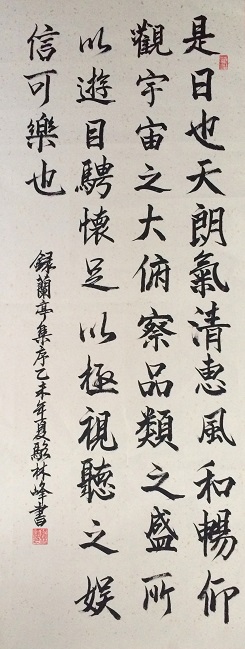 是日也天朗氣清惠風和暢仰
觀宇宙之大俯察品類之盛所
以遊目騁懷足以極視聽之娱
信可樂也
録蘭亭集序乙未年夏駱林峰書